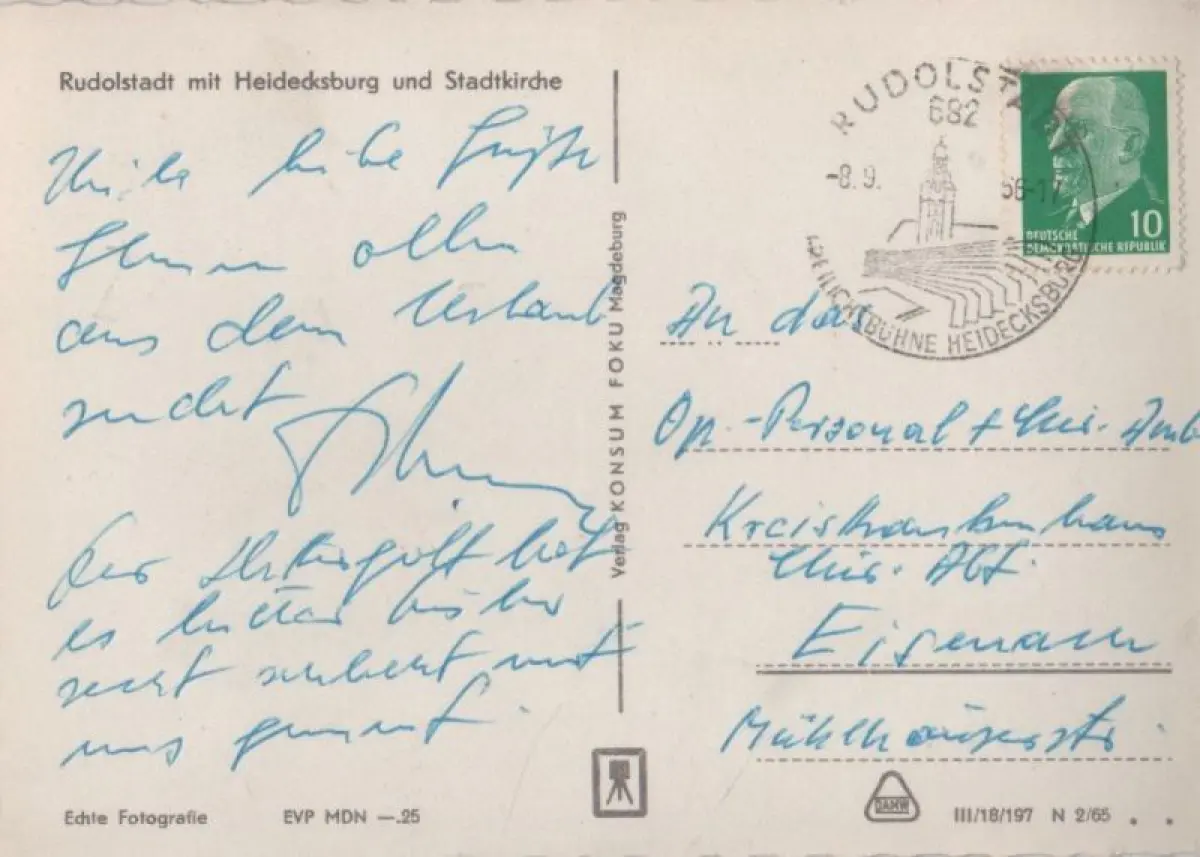 Rudolstadt mit Heidecksburg und Stadtkirche
Viele liebe Grüße
Ihnen allen
aus dem Urlaub
sendet
Der Wettergott hat
es leider bisher
recht schlecht mit
uns gemeint.
Echte Fotografie
EVP MDN —.25
Verlag KONSUM FOKU Magdeburg
RUDOLSTADT
682
-8.9. 66-17
FREILICHTBÜHNE HEIDECKSBURG
10
DEUTSCHE
DEMOKRATISCHE REPUBLIK
An das
Op.-Personal + Chir. Amb
Kreiskrankenhaus
Chir. Abt.
Eisenach
Mühlhäuserstr.
DAMW
III/18/197 N 2/65